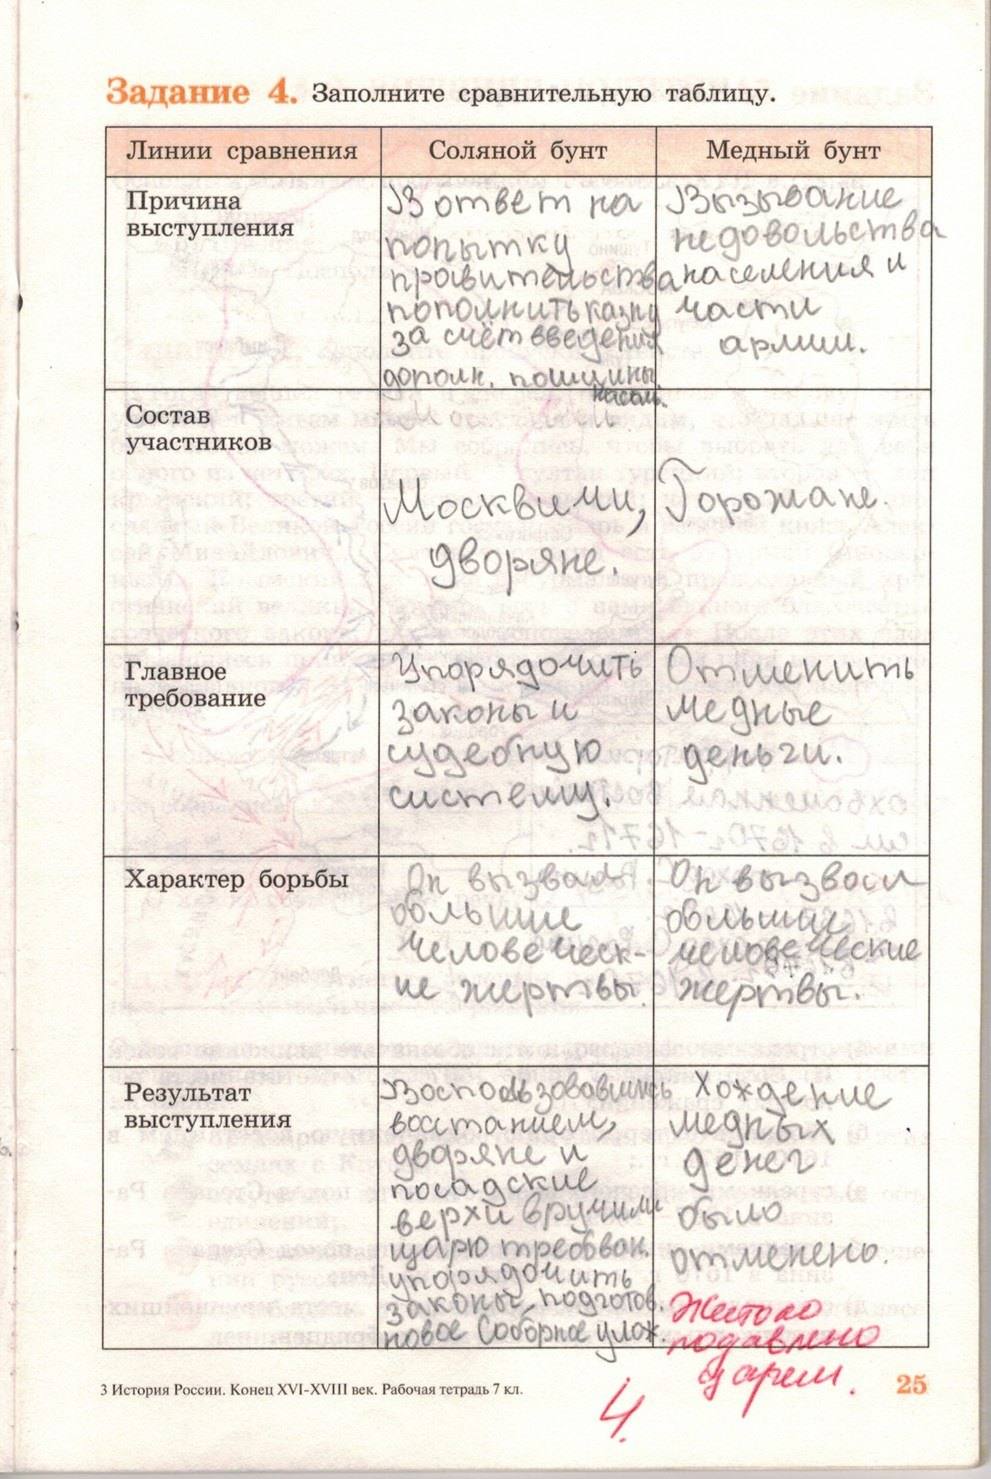 Задание 4. Заполните сравнительную таблицу.
Линии сравнения
Соляной бунт
Медный бунт
Причина
выступления
В ответ на
попытку
правительства
пополнить казну
за счёт введения
дополн. пошлины
Вызывание
недовольства
населения и
части
армии.
Состав
участников
Москвичи,
дворяне.
Горожане.
Главное
требование
Упорядочить
законы и
судебную
систему.
Отменить
медные
деньги.
Характер борьбы
Он вызвал
большие
человеческ-
ие жертвы.
Он вызвал
большие
человеческие
жертвы.
Результат
выступления
Воспользовавшись
восстанием,
дворяне и
посадские
верхи вручили
царю требован.
упорядочить
законы, подготов.
новое Соборное улож.
Хождение
медных
денег
было
отменено.
Жестоко
подавлено
царем.
4.
3 История России. Конец XVI-XVIII век. Рабочая тетрадь 7 кл.
25